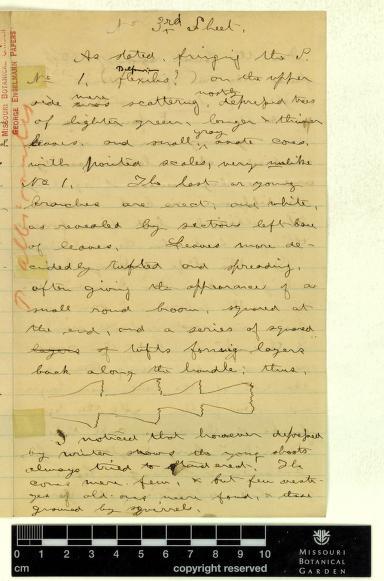 No 3rd Sheet.
As stated, fringing the P.
No 1. (flexilis?) on the upper
side were scattering, mostly depressed trees
of lighter green, longer & thinner
leaves, and small gray ovate cones,
with pointed scales, very unlike
No 1. The last or young
branches are erect, and white,
as revealed by sections left bare
of leaves. Leaves more de-
cidedly tufted and spreading,
often giving the appearance of a
small round broom, squared at
the end, and a series of squared
layers of tufts forming layers
back along the handle; thus,
I noticed that however depressed
by winter snows the young shoots
always tried to stand erect. The
cones were few, & but few vestig-
ges of old ones were found, & these
ground by squirrels.
MISSOURI BOTANICAL
GEORGE ENGELMANN PAPERS
P. albicaulis
0 1 2 3 4 5 6 7 8 9 10
cm copyright reserved
MISSOURI
BOTANICAL
GARDEN